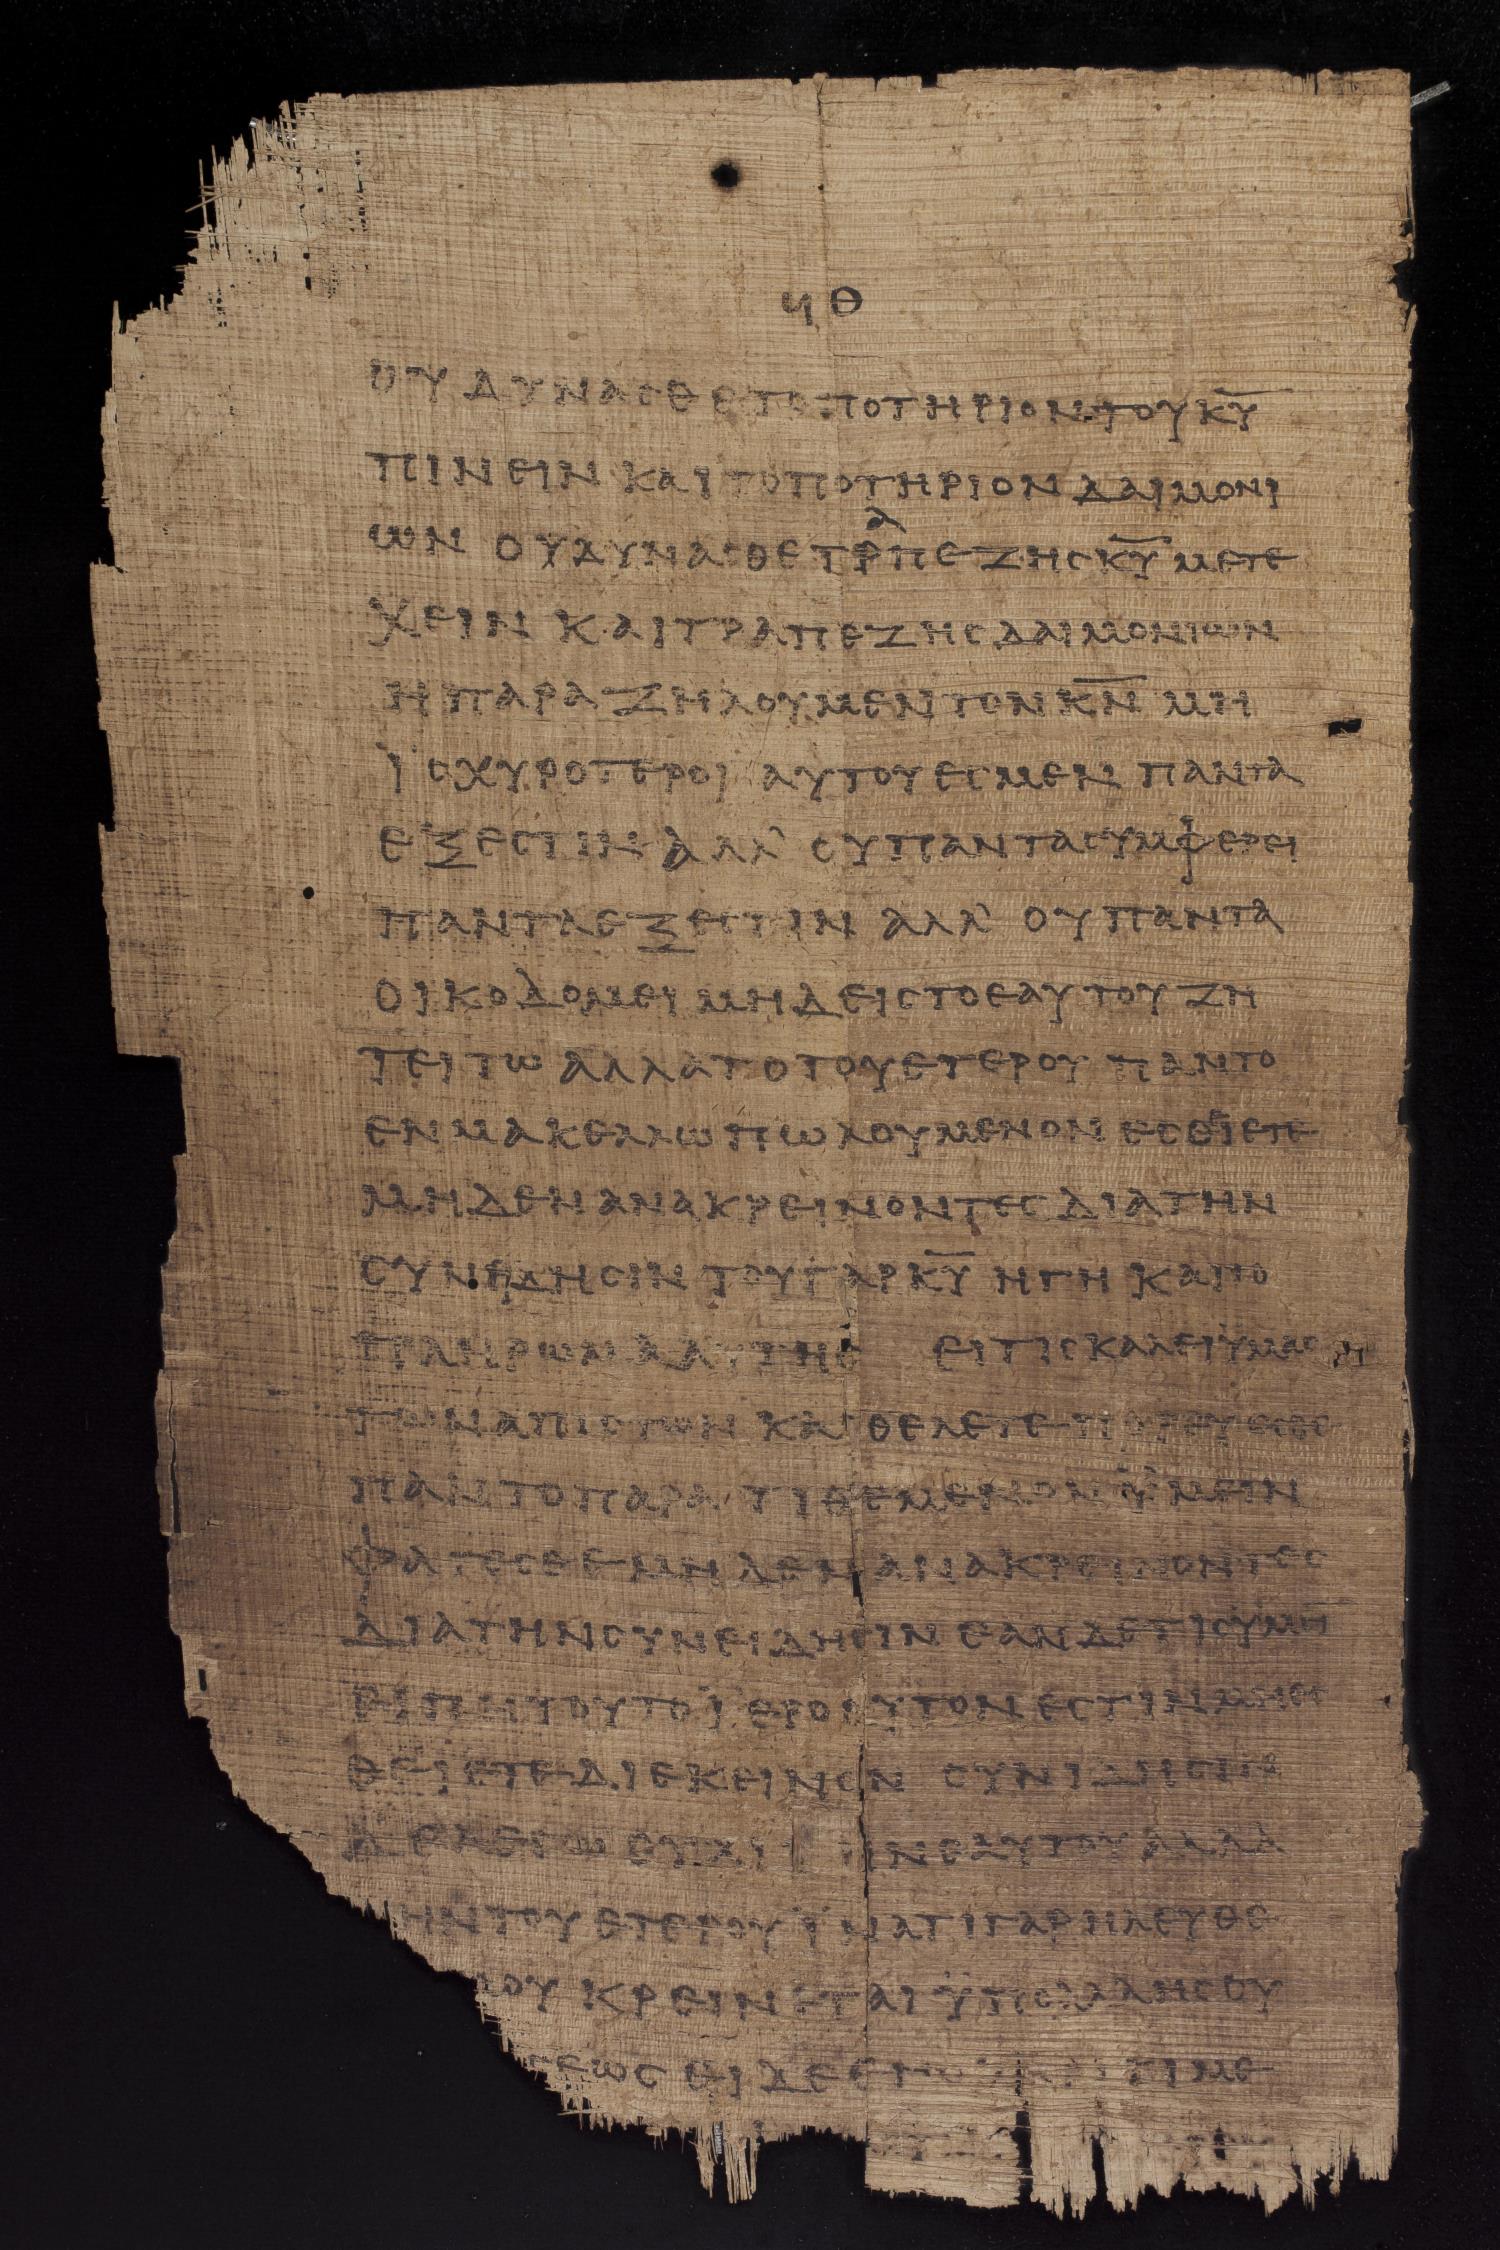 ϥθ
ου δυναсθε το ποτηριον του κ̅υ̅
πινειν και το ποτηριον δαιμονι
ων ου δυναсθε τρ`α´πεζηс κ̅υ̅ μετε
χειν και τραπεζηс δαιμονιων
η παραζηλουμεν τον κ̅ν̅ μη
ϊсχυροτεροι αυτου εсμεν παντα
εξεсτιν αλλ’ ου παντα сυμφερει
παντα εξεсτιν αλλ’ ου παντα
οικοδομει μηδειс το εαυτου ζη
τειτω αλλα το του ετερου παν το
εν μακελλω πωλουμενον εсθ`ε´ιετε
μηδεν ανακρεινοντεс δια την
сυνειδηсιν του γαρ κ̅υ̅ η γη και το
πληρωμα αυτηс ει τιс καλει ϋμαс
των απιсτων και θελετε πορευεсθε
παν το παρατιθεμενον ϋμειν
φαγεсθε μηδεν ανακρεινοντεс
δια την сυνειδηсιν εαν δε τιс ϋμιν
ειπη τουτο ϊεροθυτον εсτιν μη εс
θειετε δι εκεινον сυνιδηсιν
δε λεγω ουχι την εαυτου αλλα
ην του ετερου ϊνα τι γαρ η ελευθε
μου κρεινεται ϋπο αλληс ου
εωс ει δε εγω τι με